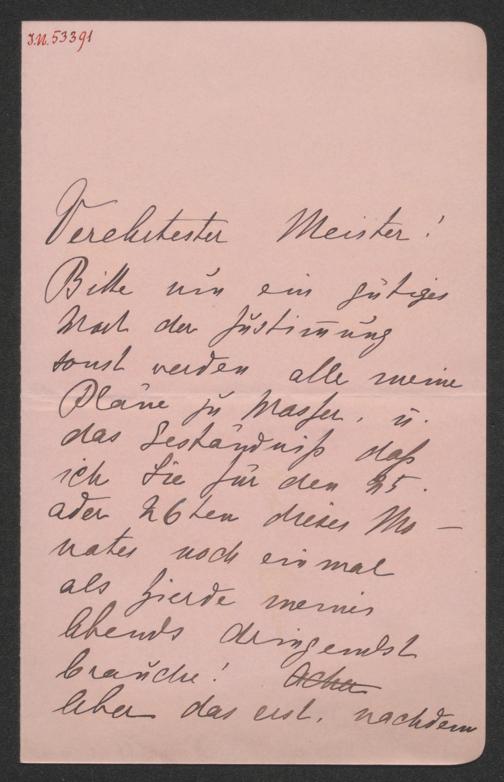 J.N. 53391
Verehrtester Meister!
Bitte um ein gütiges
Wort der Zustimmung
sonst werden alle meine
Pläne zu Wasser. u.
das Geständniß daß
ich Sie für den 25.
oder 26ten dieses Mo-
nates noch einmal
als Zierde meines
Abends dringendst
brauche!
Aber das erst, nachdem